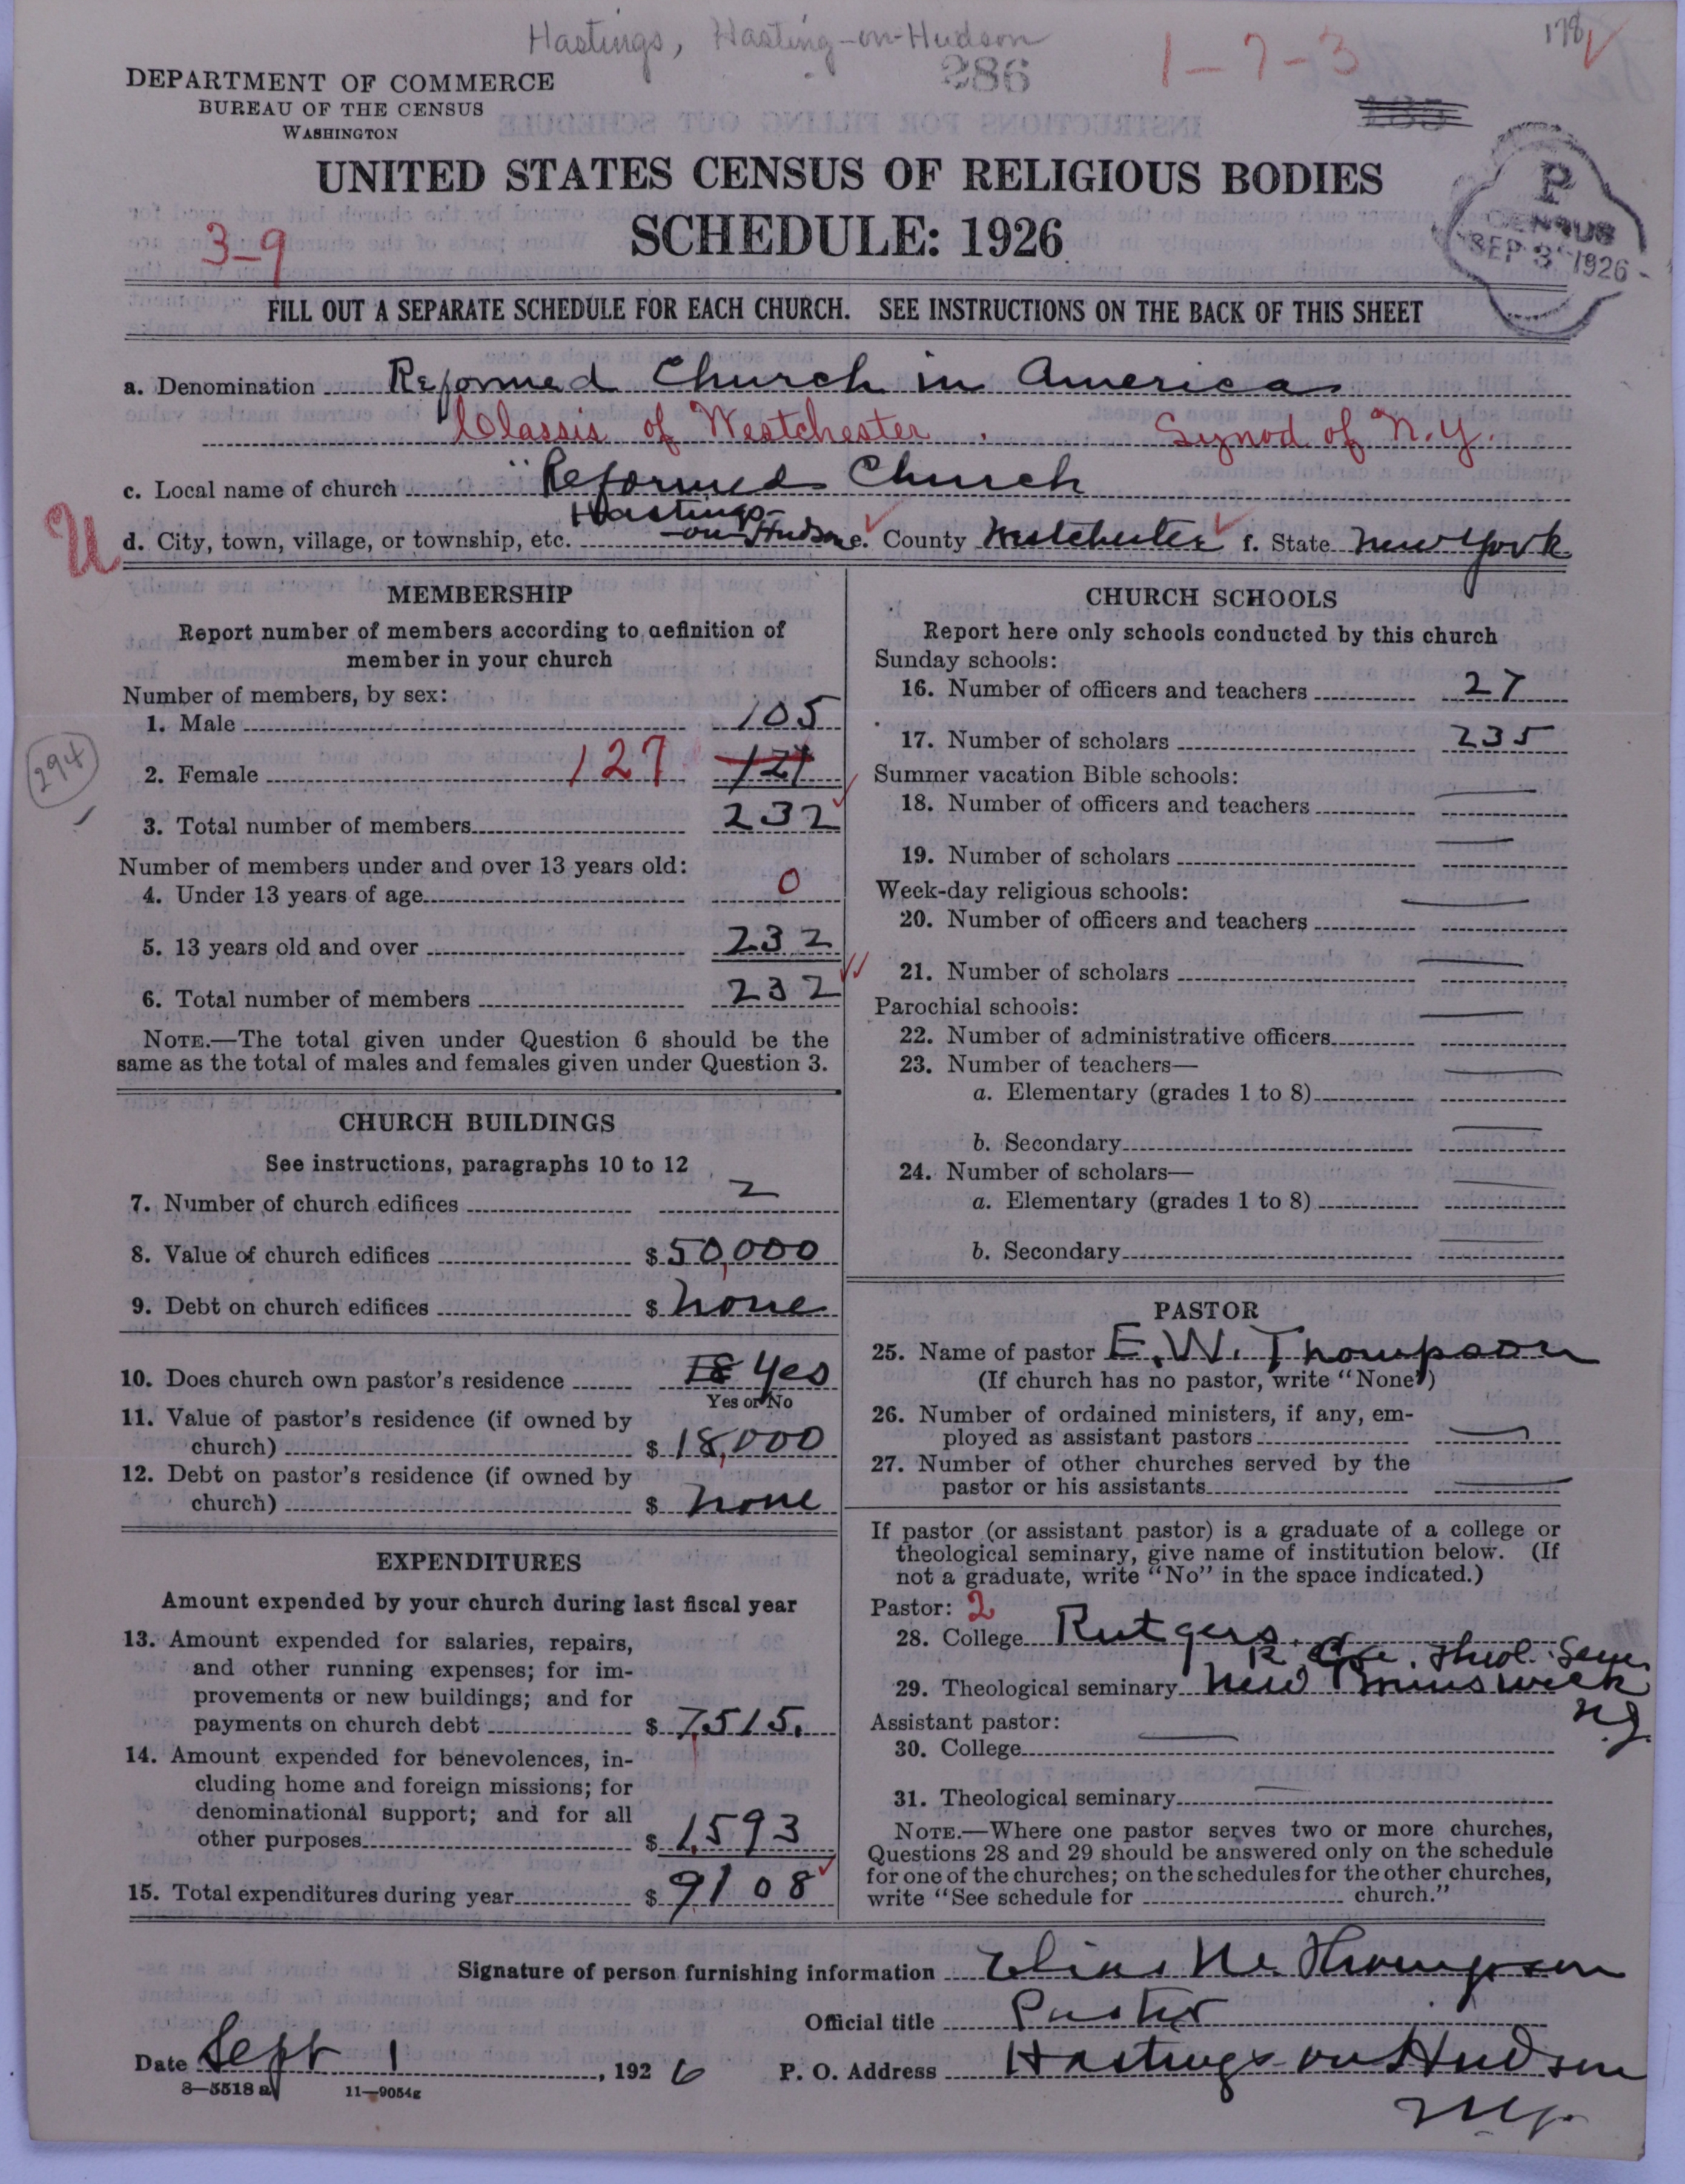 Hastings, Hasting-on-Hudson
286
1-7-3
178
DEPARTMENT OF COMMERCE
BUREAU OF THE CENSUS
WASHINGTON
UNITED STATES CENSUS OF RELIGIOUS BODIES
SCHEDULE: 1926
3-9
P
CENSUS
SEP 3 1926
FILL OUT A SEPARATE SCHEDULE FOR EACH CHURCH. SEE INSTRUCTIONS ON THE BACK OF THIS SHEET
a. Denomination Reformed Church in America
Classis of Westchester. Synod of N.Y.
c. Local name of church Reformed Church
d. City, town, village, or township, etc. Hastings-on-Hudson e. County Westchester f. State New York
U
MEMBERSHIP
Report number of members according to definition of
member in your church
Number of members, by sex:
1. Male 105
2. Female 127 127
294
3. Total number of members 232
Number of members under and over 13 years old:
4. Under 13 years of age 0
5. 13 years old and over 232
6. Total number of members 232
NOTE.—The total given under Question 6 should be the
same as the total of males and females given under Question 3.
CHURCH BUILDINGS
See instructions, paragraphs 10 to 12
7. Number of church edifices 2
8. Value of church edifices $50,000
9. Debt on church edifices $ none
10. Does church own pastor's residence Yes
Yes or No
11. Value of pastor's residence (if owned by
church) $18,000
12. Debt on pastor's residence (if owned by
church) $ none
EXPENDITURES
Amount expended by your church during last fiscal year
13. Amount expended for salaries, repairs,
and other running expenses; for im-
provements or new buildings; and for
payments on church debt $7,515.
14. Amount expended for benevolences, in-
cluding home and foreign missions; for
denominational support; and for all
other purposes $1,593
15. Total expenditures during year $9108
CHURCH SCHOOLS
Report here only schools conducted by this church
Sunday schools:
16. Number of officers and teachers 27
17. Number of scholars 235
Summer vacation Bible schools:
18. Number of officers and teachers —
19. Number of scholars —
Week-day religious schools:
20. Number of officers and teachers —
21. Number of scholars —
Parochial schools:
22. Number of administrative officers —
23. Number of teachers—
a. Elementary (grades 1 to 8) —
b. Secondary —
24. Number of scholars—
a. Elementary (grades 1 to 8) —
b. Secondary —
PASTOR
25. Name of pastor E. W. Thompson
(If church has no pastor, write "None")
26. Number of ordained ministers, if any, em-
ployed as assistant pastors —
27. Number of other churches served by the
pastor or his assistants —
If pastor (or assistant pastor) is a graduate of a college or
theological seminary, give name of institution below. (If
not a graduate, write "No" in the space indicated.)
Pastor: 2
28. College Rutgers.
Theol. Sem.
29. Theological seminary New Brunswick
N.J.
Assistant pastor:
30. College —
31. Theological seminary —
NOTE.—Where one pastor serves two or more churches,
Questions 28 and 29 should be answered only on the schedule
for one of the churches; on the schedules for the other churches,
write "See schedule for church."
Signature of person furnishing information Elias W. Thompson
Official title Pastor
Date Sept 1, 1926 P. O. Address Hastings on Hudson
N.Y.
8—5518 a 11—9054g